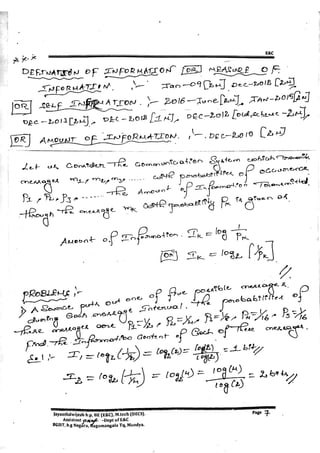 E&C
DEFINATION OF INFORMATION [OR] MEASURE OF
INFORMATION. :- Jan-09 [2M] Dec-2018 [2M]
[OR] SELF INFORMATION. :- 2016-June [2M], JAN-2015 [2M]
Dec-2013 [2M], Dec-2012 [1M], Dec-2012 [old, scheme - 2M]
[OR] AMOUNT OF INFORMATION. :- Dec-2010 [2M]
Let us Consider The Communication System which Transmits
messages m1, m2, m3, ..... with probabilities of occurrence
P1, P2, P3, ........ The Amount of Information Transmitted
through the message mK with probability PK is given as.
Amount of Information. IK = log 1/PK
[OR] IK = log2 [1/PK].
PROBLEMS :-
1) A Source puts out one of five possible messages
during Each message Interval. The probabilities of
These messages are P1=1/2, P2=1/4, P3=1/8
find The Information Content of Each of these messages.
Sol :- I1 = log2 (1/1/2) = log2(2) = log(2)/log(2) = 1 bit//
I2 = log2 (1/1/4) = log2(4) = log(4)/log(2) = 2 bits//
Assistant -Dept of E&C
BGSIT, b.g Nagara, Nagamangala Tq, Mandya.
Page 7